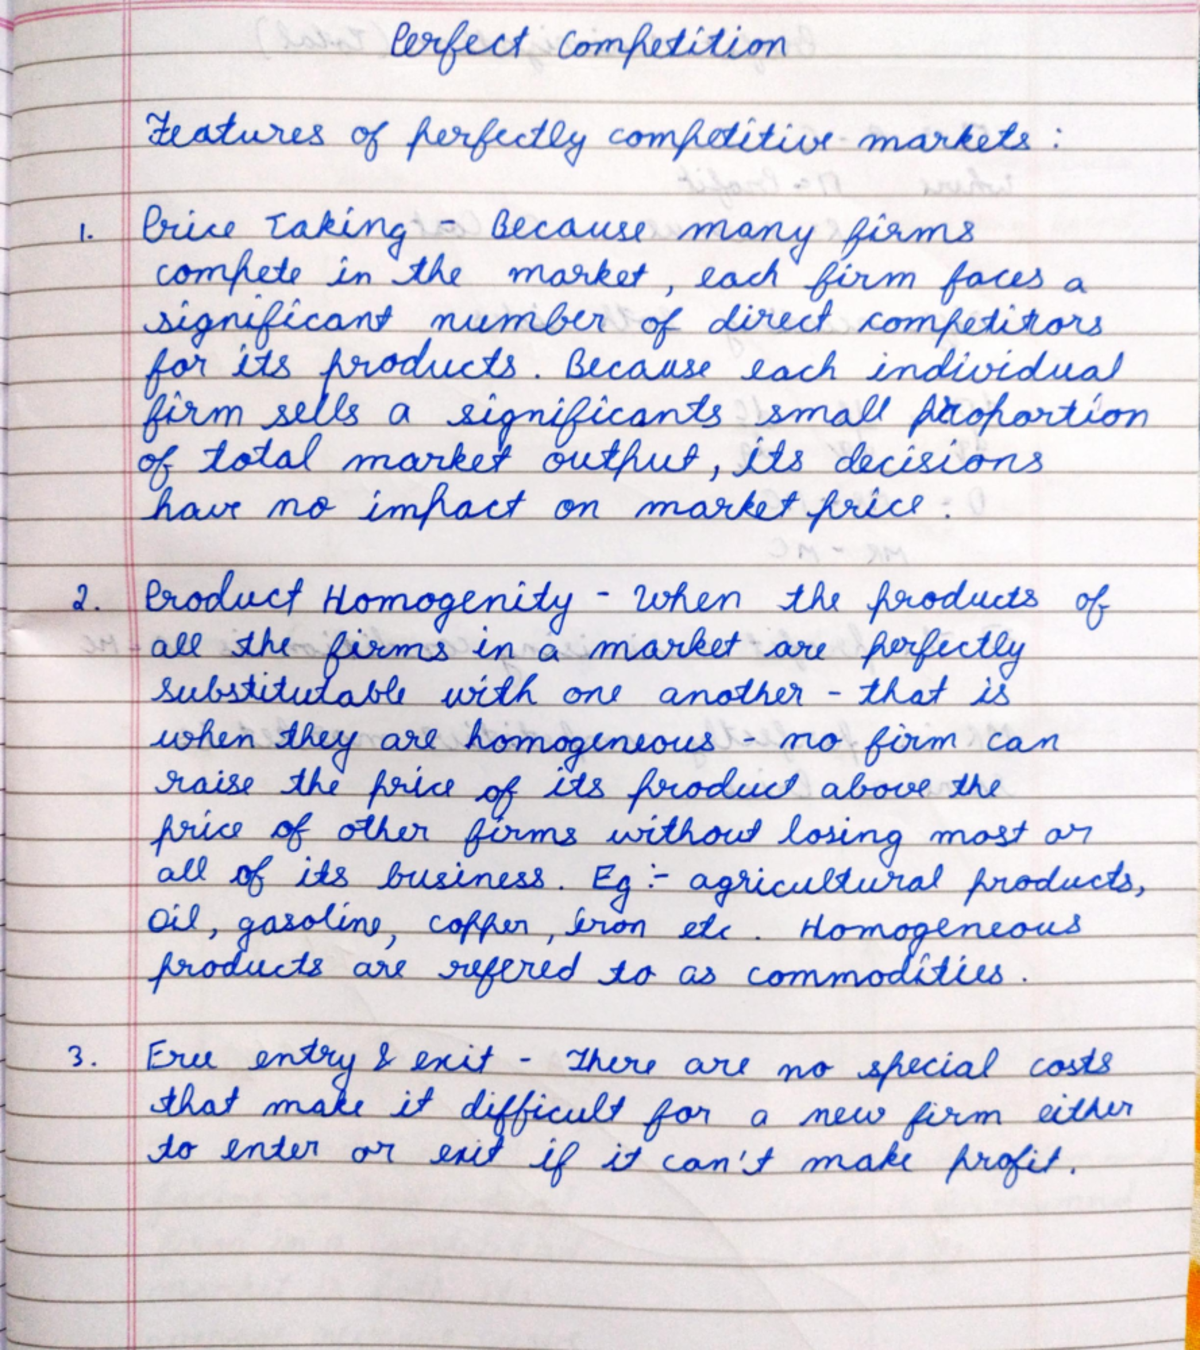 Perfect Competition
Features of perfectly competitive markets :
1. Price Taking - Because many firms
compete in the market, each firm faces a
significant number of direct competitors
for its products. Because each individual
firm sells a significants small proportion
of total market output, its decisions
have no impact on market price.
2. Product Homogenity - When the products of
all the firms in a market are perfectly
substitutable with one another - that is
when they are homogeneous - no firm can
raise the price of its product above the
price of other firms without losing most or
all of its business. Eg :- agricultural products,
Oil, gasoline, copper, iron etc. Homogeneous
products are refered to as commodities.
3. Free entry & exit - There are no special costs
that make it difficult for a new firm either
to enter or exit if it can't make profit.